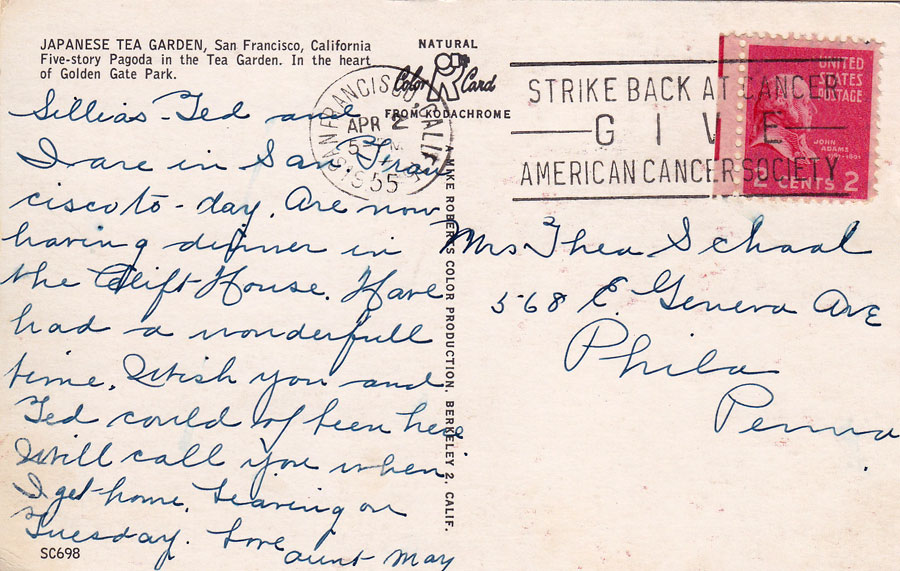 JAPANESE TEA GARDEN, San Francisco, California
Five-story Pagoda in the Tea Garden. In the heart
of Golden Gate Park.
NATURAL
Color Card
FROM KODACHROME
SAN FRANCISCO, CALIF.
APR 2
1955
STRIKE BACK AT CANCER
GIVE
AMERICAN CANCER SOCIETY
UNITED
STATES
POSTAGE
JOHN
ADAMS
2 CENTS 2
Ted and
I are in San Fran
cisco to-day. Are now
having dinner in
the Clift House. Have
had a wonderfull
time. Wish you and
Ted could of been here
Will call you when
I get home. Leaving on
Tuesday. Love
aunt May
SC698
A MIKE ROBERTS COLOR PRODUCTION. BERKELEY 2, CALIF.
Mrs Thea Schaal
568 E. Geneva Ave
Phila
Penna